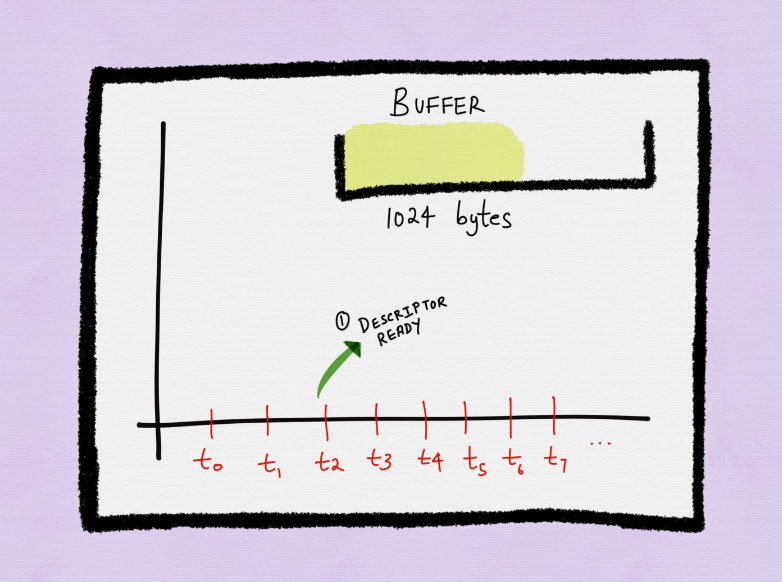 BUFFER
1024 bytes
① DESCRIPTOR
READY
t₀ t₁ t₂ t₃ t₄ t₅ t₆ t₇ ...